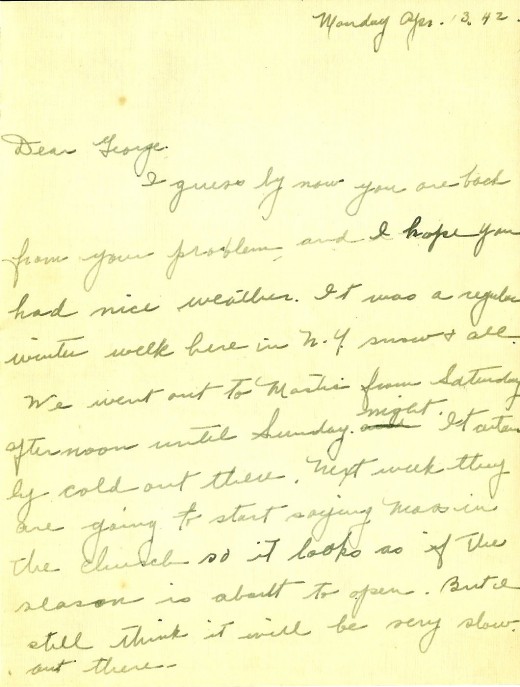 Monday Apr. 13. 42.
Dear George.
I guess by now you are back
from your problem, and I hope you
had nice weather. It was a regular
winter week here in N.Y. snow & all.
We went out to Mastic from Saturday
afternoon until Sunday. night. It certain
ly cold out there. Next week they
are going to start saying Mass in
the church so it looks as if the
season is about to open. But I
still think it will be very slow.
out there-